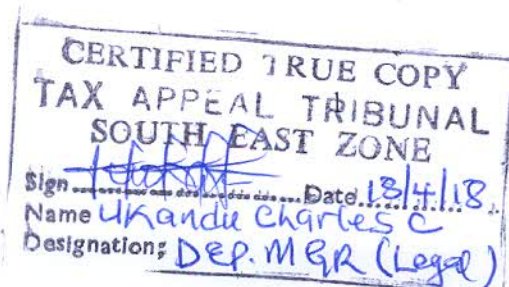 CERTIFIED TRUE COPY
TAX APPEAL TRIBUNAL
SOUTH EAST ZONE
Sign............Date 13/4/18
Name Ukandu Charles C
Designation; DEP. MGR (Legal)